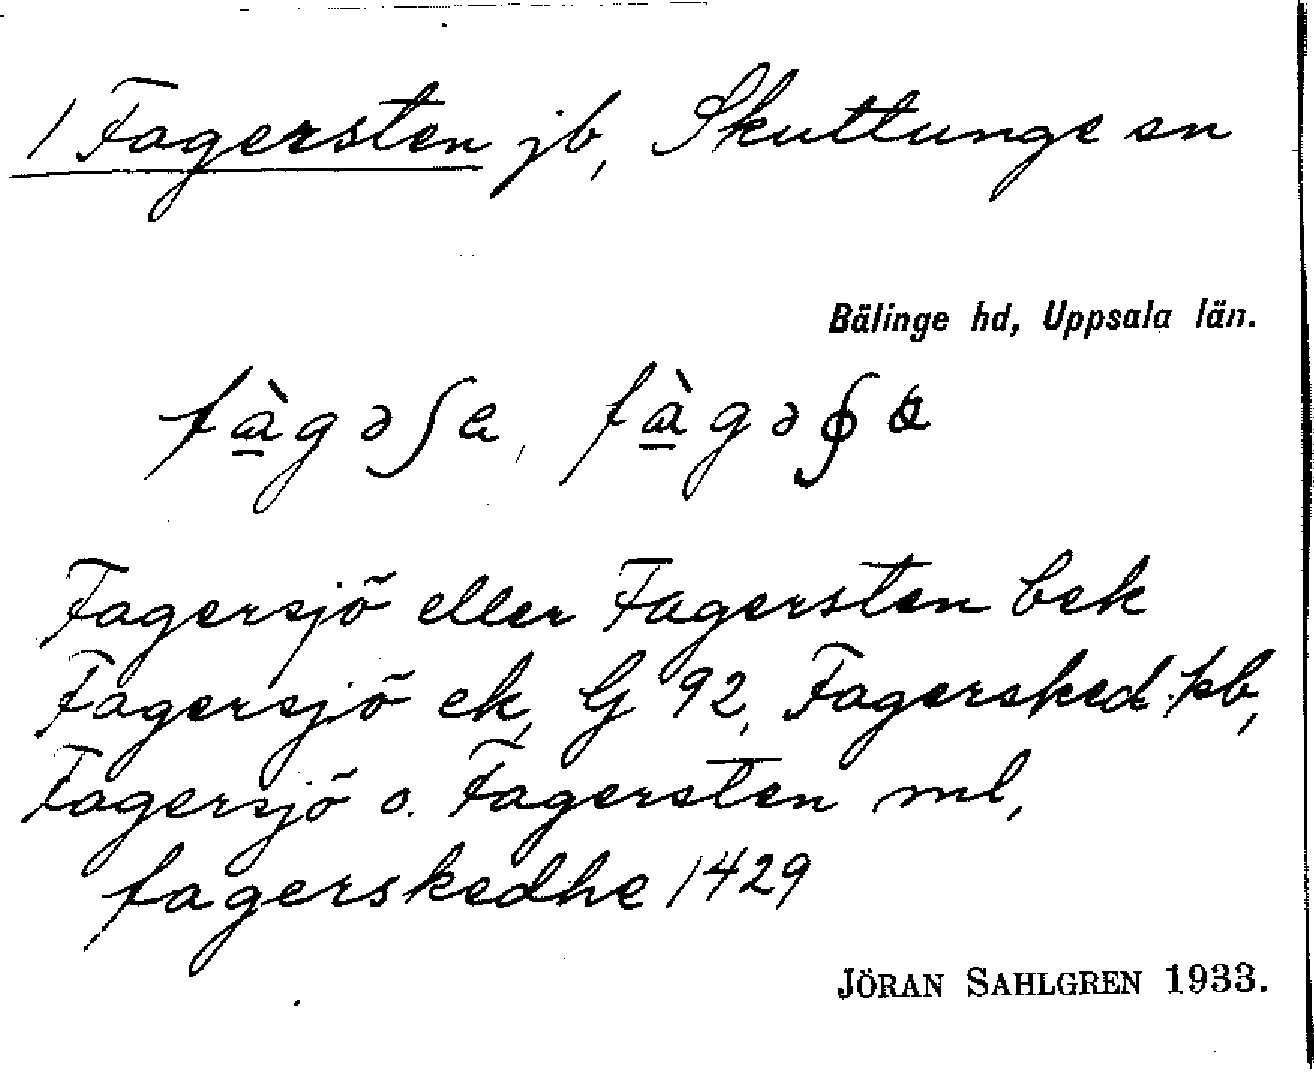 1 Fagersten jb, Skuttunge sn
Bälinge hd, Uppsala län.
fàgəʃa, fàgə
Fagersjö eller Fagersten bek
Fagersjö ek, G 92, Fagersked kb,
Fagersjö o. Fagersten ml,
fagerskedhe 1429
JÖRAN SAHLGREN 1933.